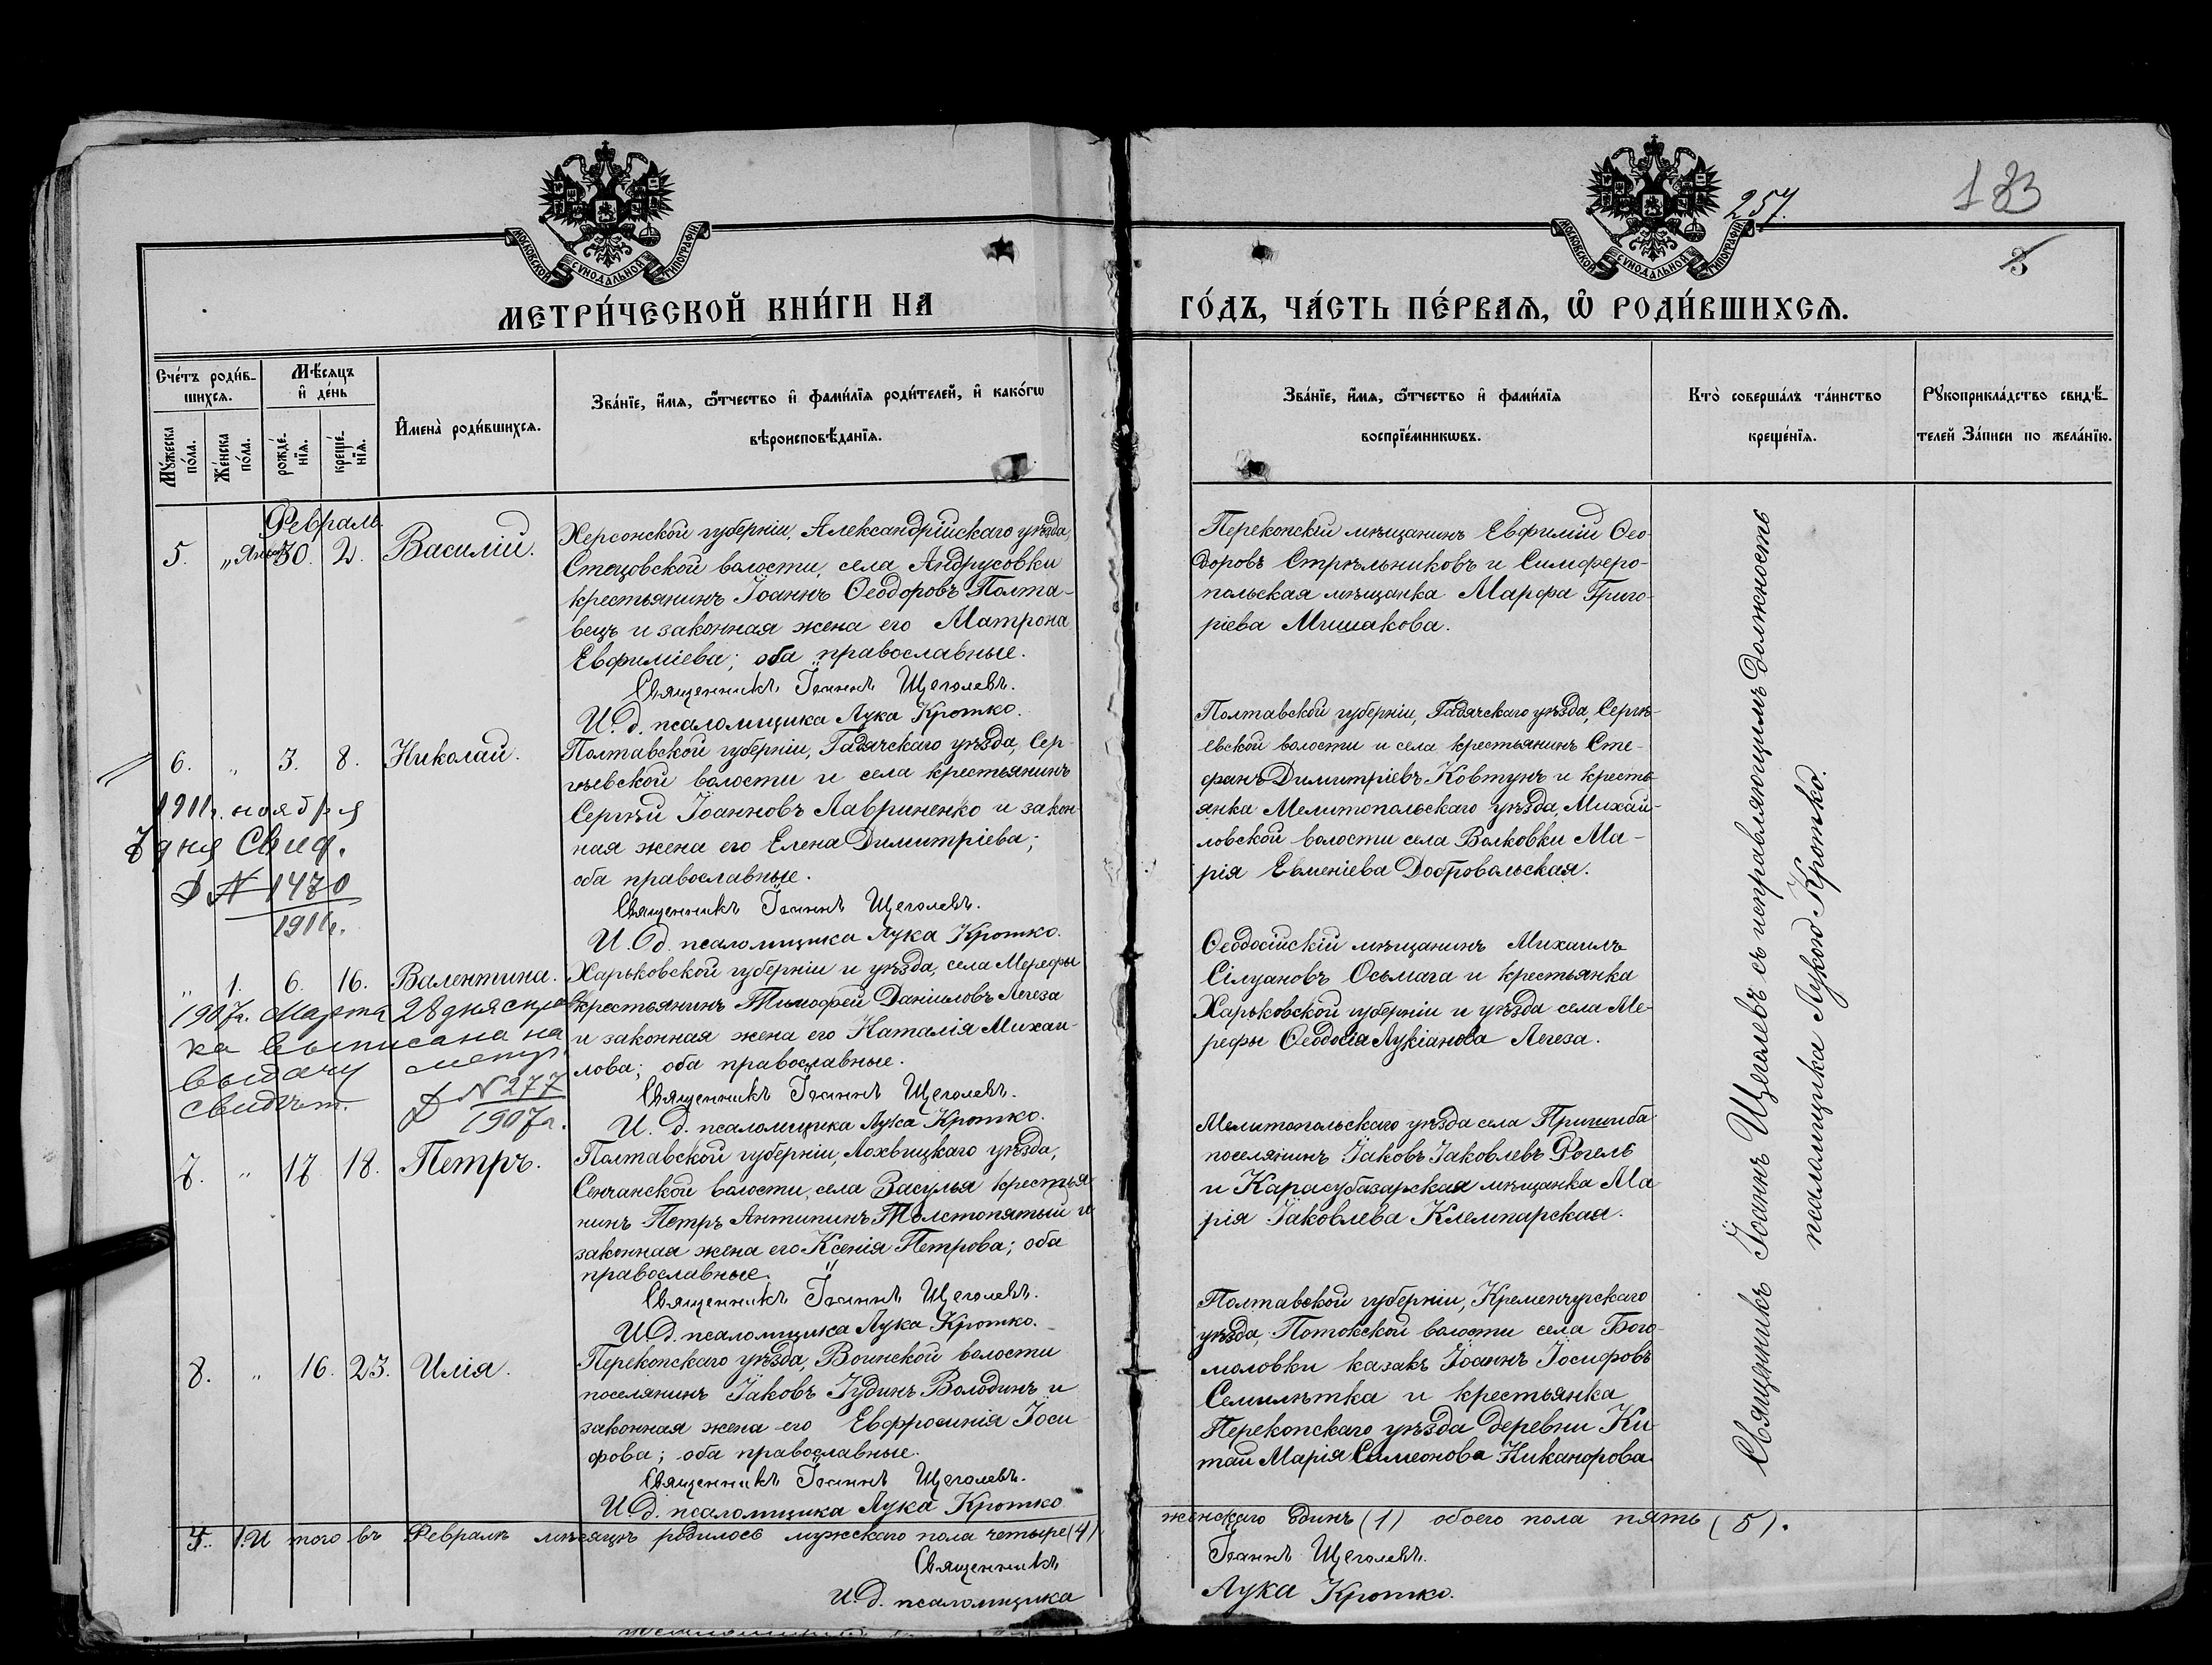 257.
183
3
МОСКОВСКОЙ СУНОДАЛЬНОЙ ТИПОГРАФІИ
МОСКОВСКОЙ СУНОДАЛЬНОЙ ТИПОГРАФІИ
МЕТРИ́ЧЕСКОЙ КНИ́ГИ НА
ГО́ДЪ, ЧА́СТЬ ПЕ́РВАѦ, Ѡ҆ РОДИ́ВШИХСѦ.
Сче́тъ роди́в-
шихсѧ.
Мѣ́сѧцъ
и҆ де́нь
Мꙋ́жеска
по́ла.
Же́нска
по́ла.
рожде́-
нїѧ.
креще́-
нїѧ.
И҆мена̀ роди́вшихсѧ.
Зва́нїе, и҆́мѧ, ѻ҆́тчество и҆ фами́лїѧ роди́телей, и҆ како́гѡ
вѣроисповѣ́данїѧ.
Зва́нїе, и҆́мѧ, ѻ҆́тчество и҆ фами́лїѧ
воспрїе́мникѡвъ.
Кто̀ соверша́лъ та́инство
креще́нїѧ.
Рꙋкоприкла́дство свидѣ́-
телей За́писи по жела́нїю.
Февраль.
5. „ Янв. 30. 2. Василій.
Херсонской губерніи, Александрійскаго уѣзда,
Стецовской волости, села Андрусовки
крестьянинъ Іоаннъ Ѳеодоровъ Полта-
вецъ и законная жена его Матрона
Евфиміева; оба православные.
Священникъ Іоаннъ Щеголевъ.
И. д. псаломщика Лука Кротко.
Перекопскій мѣщанинъ Евфимій Ѳео-
доровъ Стрѣльниковъ и Симферо-
польская мѣщанка Марфа Григо-
ріева Мишакова.
6. „ 3. 8. Николай.
1911г. ноября
7 дня Свид.
№ 1470
1911г.
Полтавской губерніи, Гадячскаго уѣзда, Сер-
гѣевской волости и села крестьянинъ
Сергѣй Іоанновъ Лавриненко и закон-
ная жена его Елена Димитріева;
оба православные.
Священникъ Іоаннъ Щеголевъ.
И. д. псаломщика Лука Кротко.
Полтавской губерніи, Гадячскаго уѣзда, Сергѣ-
евской волости и села крестьянинъ Сте-
фанъ Димитріевъ Ковтунъ и кресть-
янка Мелитопольскаго уѣзда, Михай-
ловской волости села Волковки Ма-
рія Евменіева Добровольская.
„ 1. 6. 16. Валентина.
1907г. Марта 28 дня справ
ка выписана на
выдачу метр.
свидѣт. № 277
1907г.
Харьковской губерніи и уѣзда, села Мерефы
крестьянинъ Тимофей Даніиловъ Легеза
и законная жена его Наталія Михаи-
лова; оба православные.
Священникъ Іоаннъ Щеголевъ.
И. д. псаломщика Лука Кротко.
Ѳеодосійскій мѣщанинъ Михаилъ
Сілуановъ Осьмага и крестьянка
Харьковской губерніи и уѣзда села Ме-
рефы Ѳеодосія Лукіанова Легеза.
7. „ 17 18. Петръ.
Полтавской губерніи, Лохвицкаго уѣзда,
Сенчанской волости, села Засулья крестья
нинъ Петръ Антипинъ Толстопятый и
законная жена его Ксенія Петрова; оба
православные.
Священникъ Іоаннъ Щеголевъ.
И. д. псаломщика Лука Кротко.
Мелитопольскаго уѣзда села Пришиба
поселянинъ Іаковъ Іаковлевъ Фогель
и Карасубазарская мѣщанка Ма
рія Іаковлева Клемпарская.
8. „ 16. 23. Илія.
Перекопскаго уѣзда, Воинской волости
поселянинъ Іаковъ Іудинъ Володинъ и
законная жена его Евфросинія Іоси-
фова; оба православные.
Священникъ Іоаннъ Щеголевъ.
И. д. псаломщика Лука Кротко
Полтавской губерніи, Кременчугскаго
уѣзда, Потокской волости села Бого-
моловки казакъ Іоаннъ Іосифовъ
Семилѣтка и крестьянка
Перекопскаго уѣзда деревни Ки-
тай Марія Симеонова Никанорова
Священникъ Іоаннъ Щеголевъ съ исправляющимъ должность
псаломщика Лукою Кротко.
4. 1. И того въ Февралѣ мѣсяцѣ родилось мужскаго пола четыре (4) женскаго один (1) обоего пола пять (5).
Священникъ Іоаннъ Щеголевъ.
И. д. псаломщика Лука Кротко.